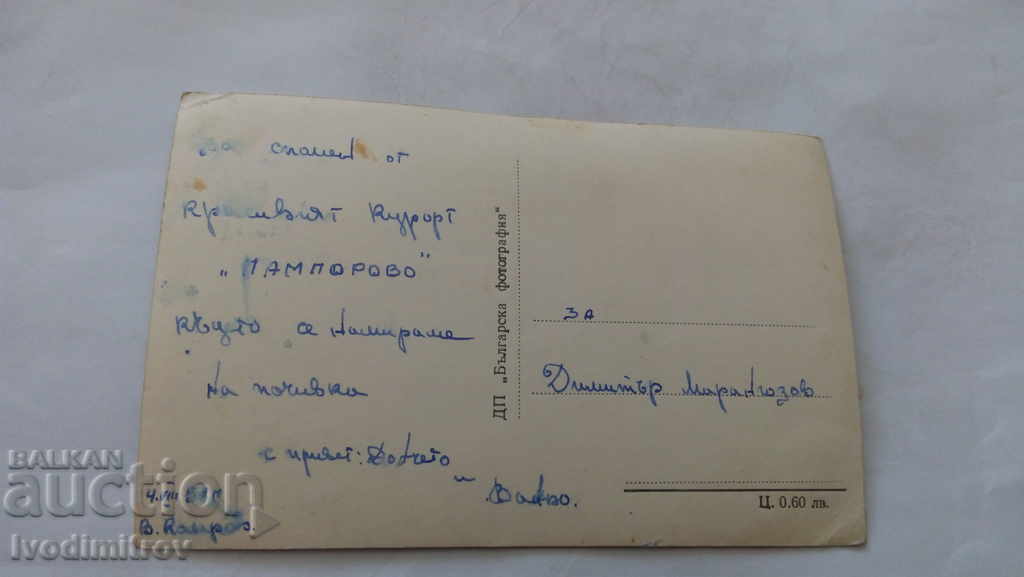 За спомен от
красивият курорт
„ПАМПОРОВО"
където се намираме
на почивка
с прият:
и
Вальо.
4.VIII
В.
ДП „Българска фотография"
ЗА
Димитър Марангозов
Ц. 0.60 лв.
BALKAN
auction
Ivodimitrov